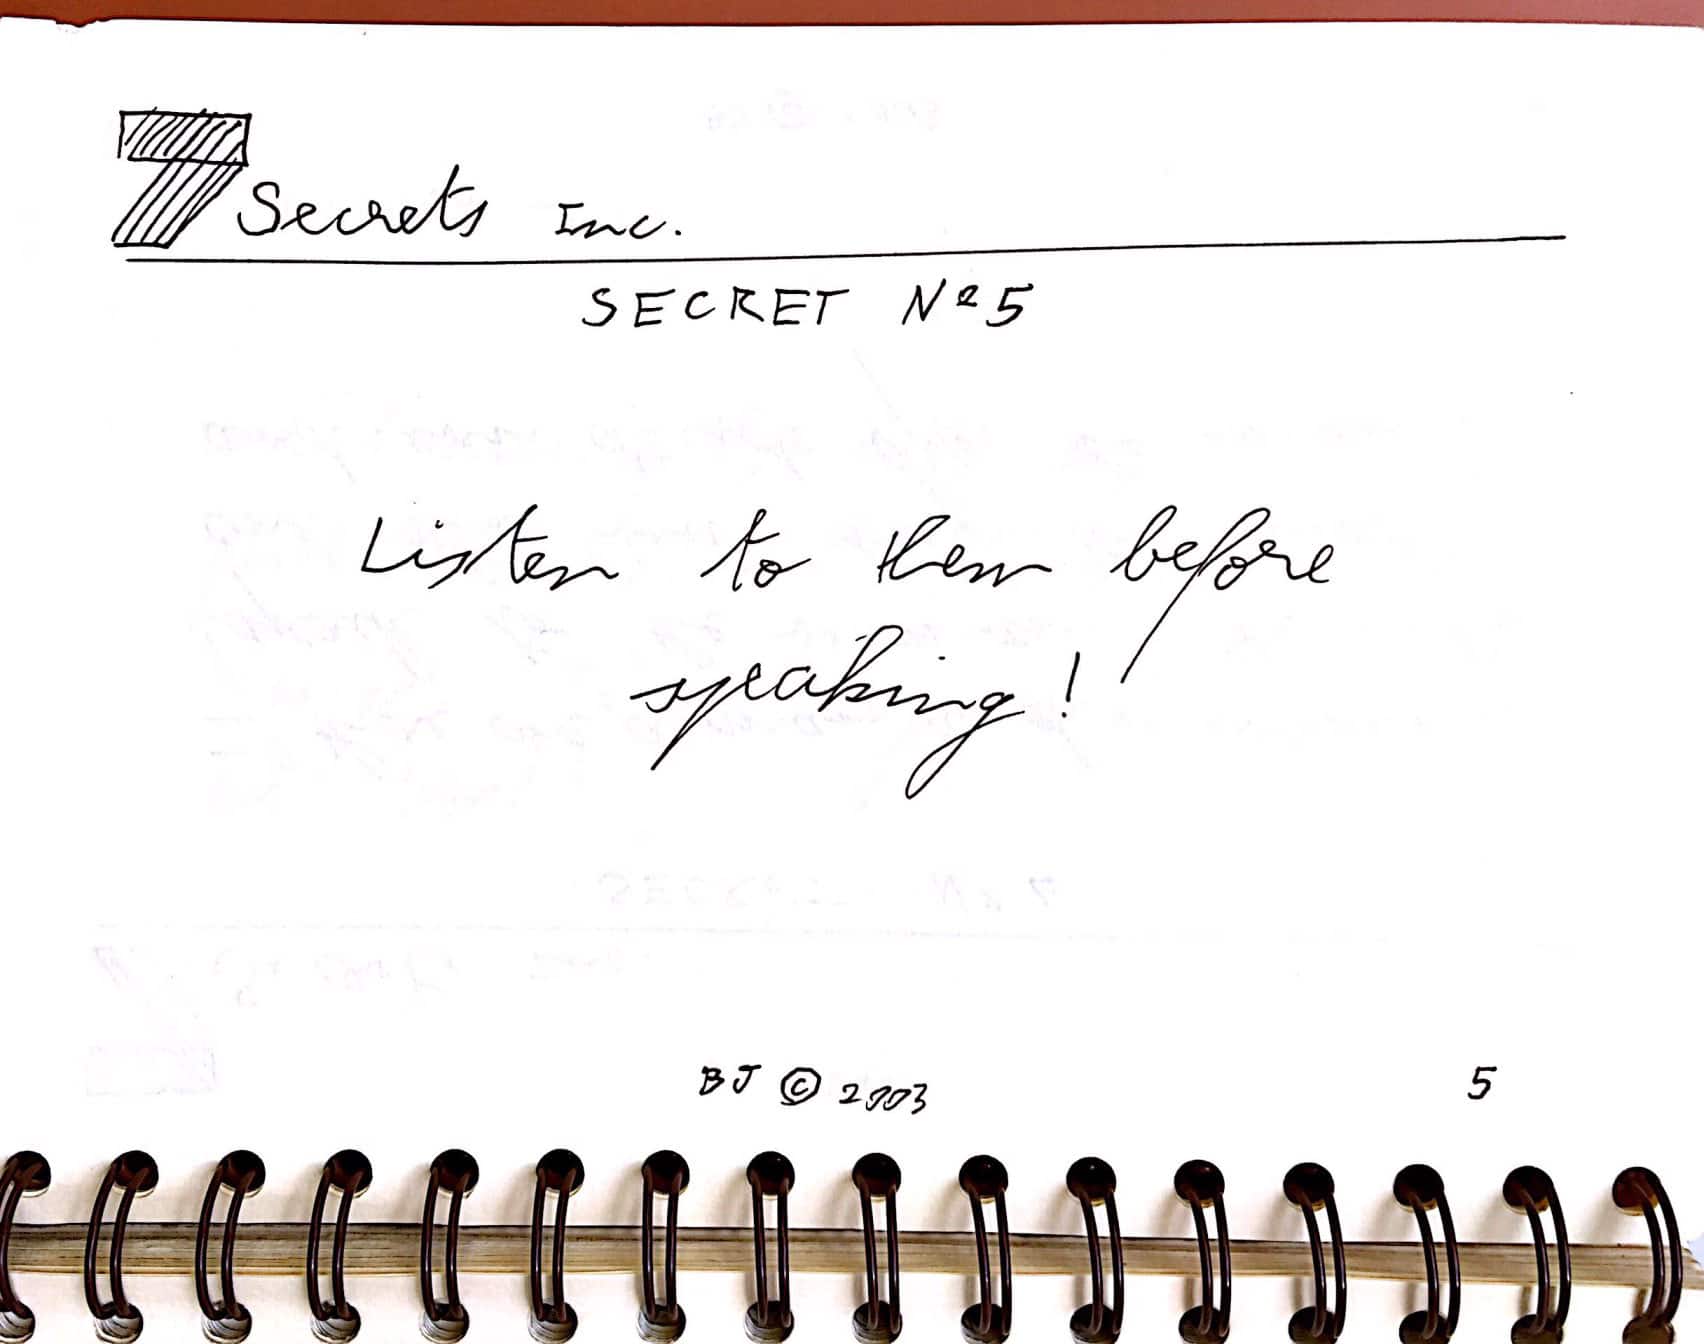 7 Secrets Inc.
SECRET Nº 5
Listen to them before
speaking!
BJ © 2003
5